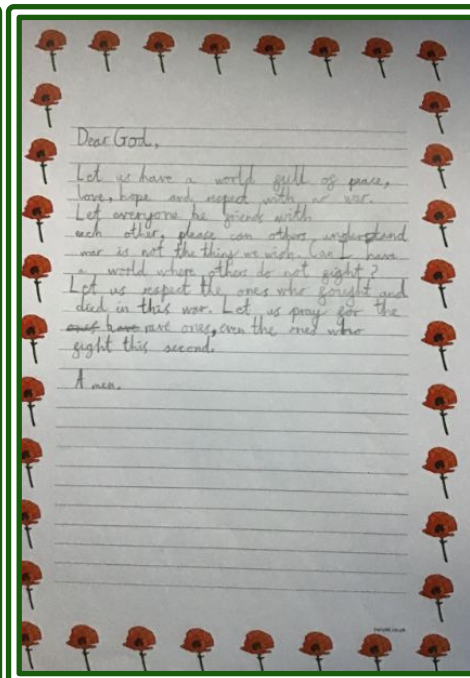 Dear God,
Let us have a world full of peace,
love, hope and respect with no war.
Let everyone be friends with
each other, please can others understand
war is not the thing we wish. Can I have
a world where others do not fight?
Let us respect the ones who fought and
died in this war. Let us pray for the
ones have ones, even the ones who
fight this second.
Amen.